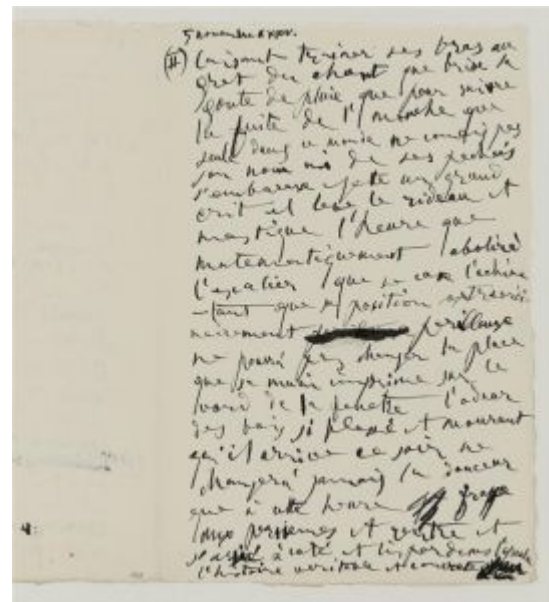 5 novembre XXXV.
(II) laissant traîner ses bras au
gret du chant que brise la
goute de pluie que pour suivre
la fuite de l' mouche que
seule dans ce monde ne connait pas
son nom ni de ses pechés
s'embarasse jette un grand
crit et leve le rideau et
mastique l'heure que
matematiquement abolira
l'escalier que se case l'echine
tant que sa position extraordi
nairement perilleuse
ne pourra pas changer la place
que sa main imprime sur le
bord de la fenetre l'odeur
des bois si et mourant
qu'il arrive ce soir ne
changera jamais la douceur
que à cette heure frappe
aux persiennes et rentre et
à coté et
l'histoire veritable et